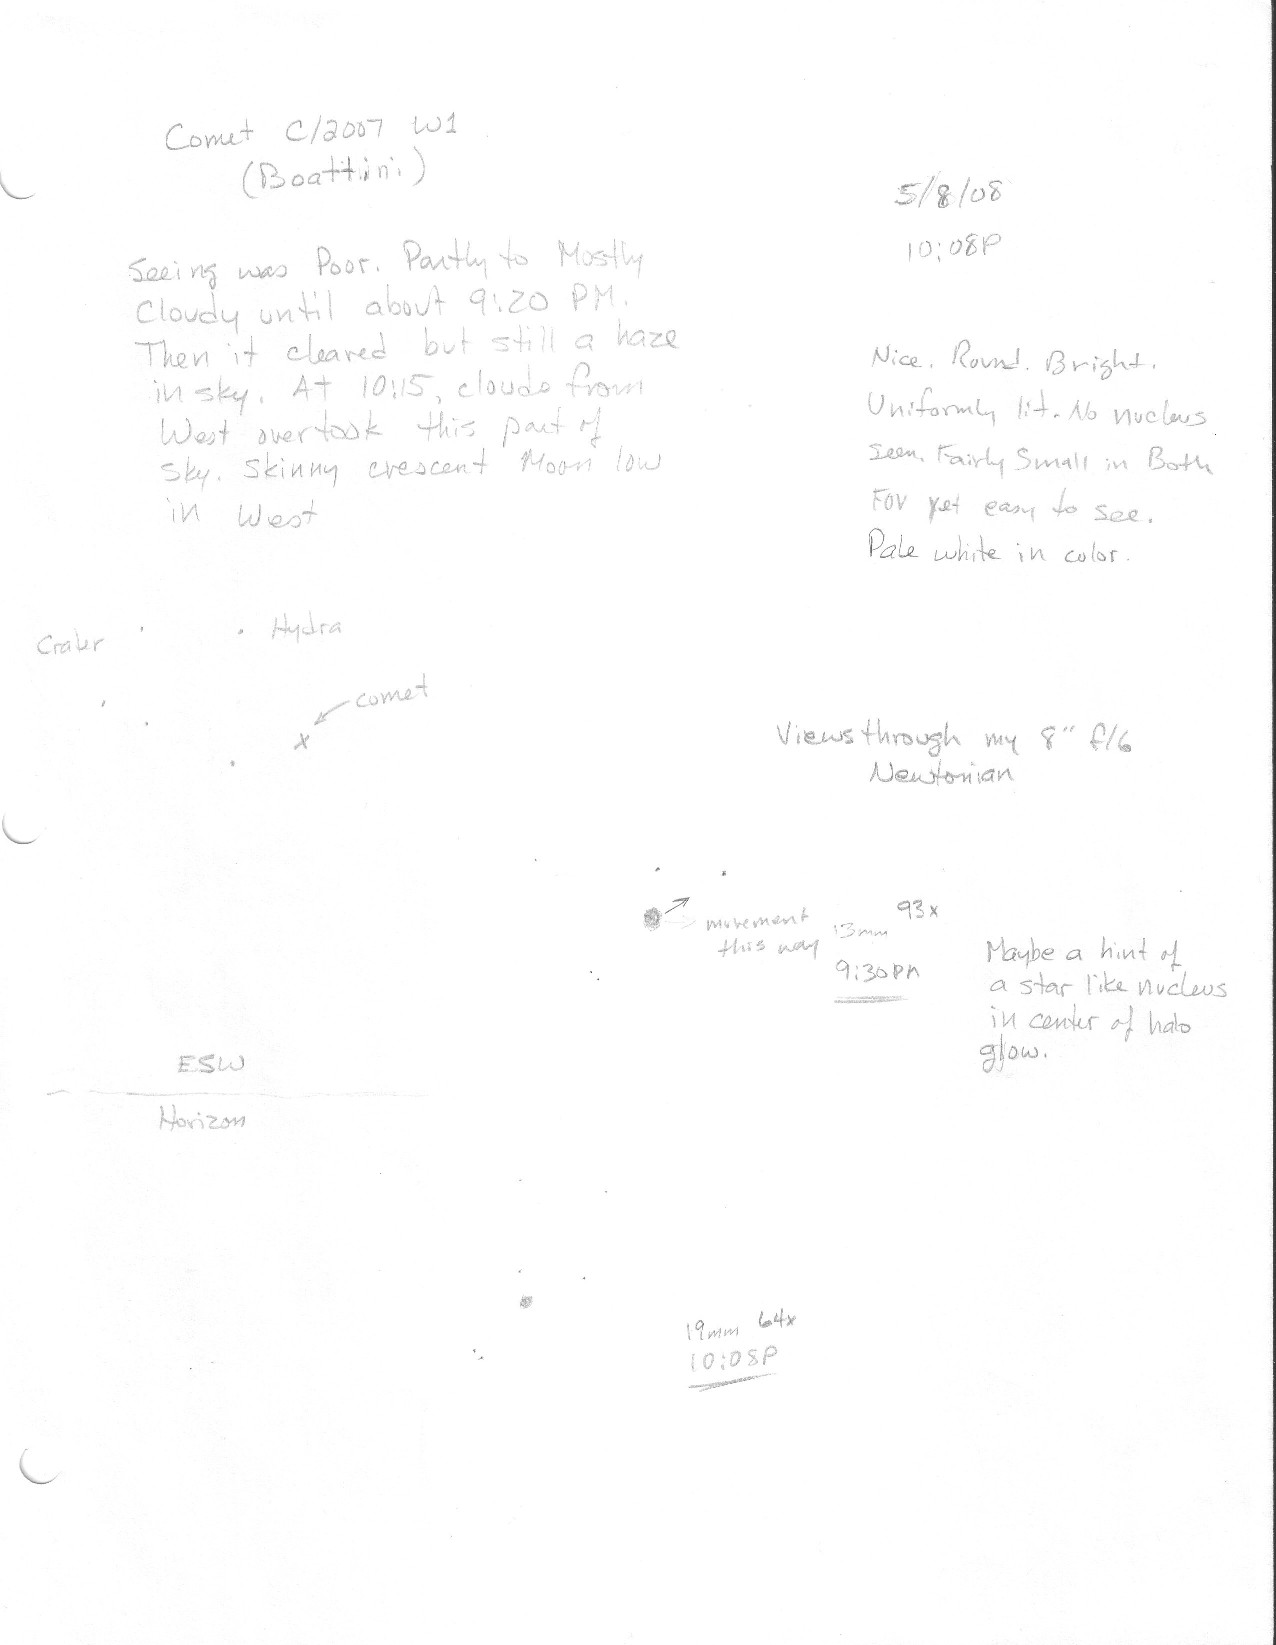 Comet C/2007 W1
(Boattini)
5/8/08
10:08P
Seeing was Poor. Partly to Mostly
Cloudy until about 9:20 PM.
Then it cleared but still a haze
in sky. At 10:15, clouds from
West overtook this part of
sky. Skinny crescent Moon low
in West
Nice. Round. Bright.
Uniformly lit. No nucleus
seen. Fairly Small in Both
FOV yet easy to see.
Pale white in color.
Crater
Hydra
comet
x
Views through my 8" f/6
Newtonian
movement
this way
13mm 93x
9:30PM
Maybe a hint of
a star like nucleus
in center of halo
glow.
ESW
Horizon
19mm 64x
10:08P